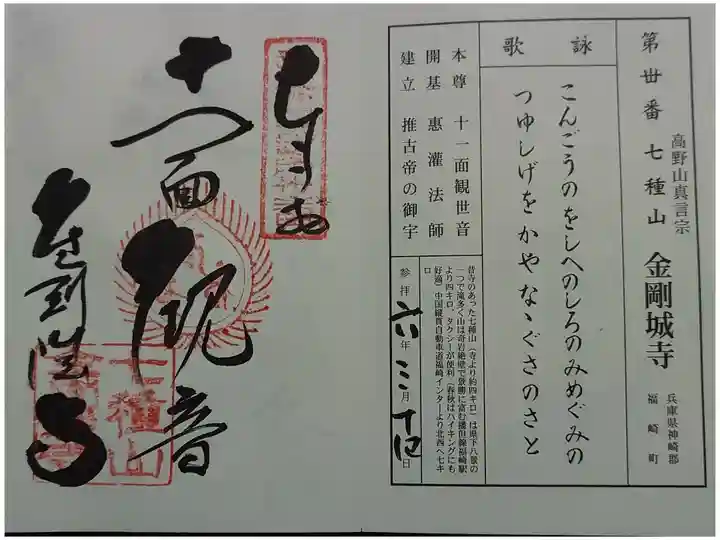 第丗番 七種山 高野山真言宗 金剛城寺 兵庫県神崎郡福崎町
詠歌
こんごうのをしへのしろのみめぐみの
つゆしげをかやなゝぐさのさと
本尊 十一面観世音
開基 惠灌法師
建立 推古帝の御宇
参拝 六年三月十四日
昔寺のあった七種山(寺より約四キロ)は県下八景の
一つで滝多く山は奇岩絶壁で景勝に富む播但線福崎駅
より四キロ、タクシーが便利(春秋はハイキングにも
好適)中国縦貫自動車道福崎インターより北西へ七キ
ロ
十一面観音
金剛城寺
七種山